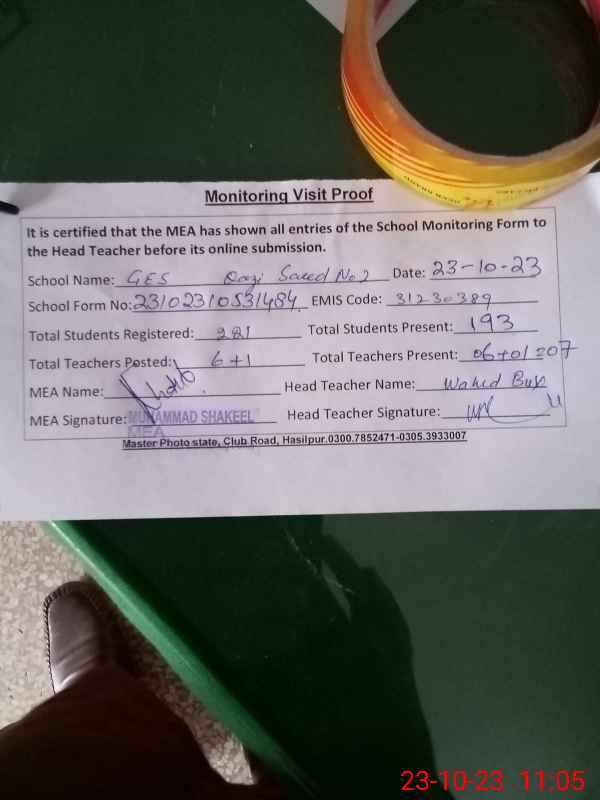 Monitoring Visit Proof
It is certified that the MEA has shown all entries of the School Monitoring Form to
the Head Teacher before its online submission.
School Name: GES Qazi Saeed No 2 Date: 23-10-23
School Form No: 23102310531484 EMIS Code: 31230389
Total Students Registered: 281 Total Students Present: 193
Total Teachers Posted: 6+1 Total Teachers Present: 06+01=07
MEA Name: Head Teacher Name: Wahid Bux
MEA Signature: MUHAMMAD SHAKEEL Head Teacher Signature:
MEA
Master Photo state, Club Road, Hasilpur.0300.7852471-0305.3933007
23-10-23 11:05